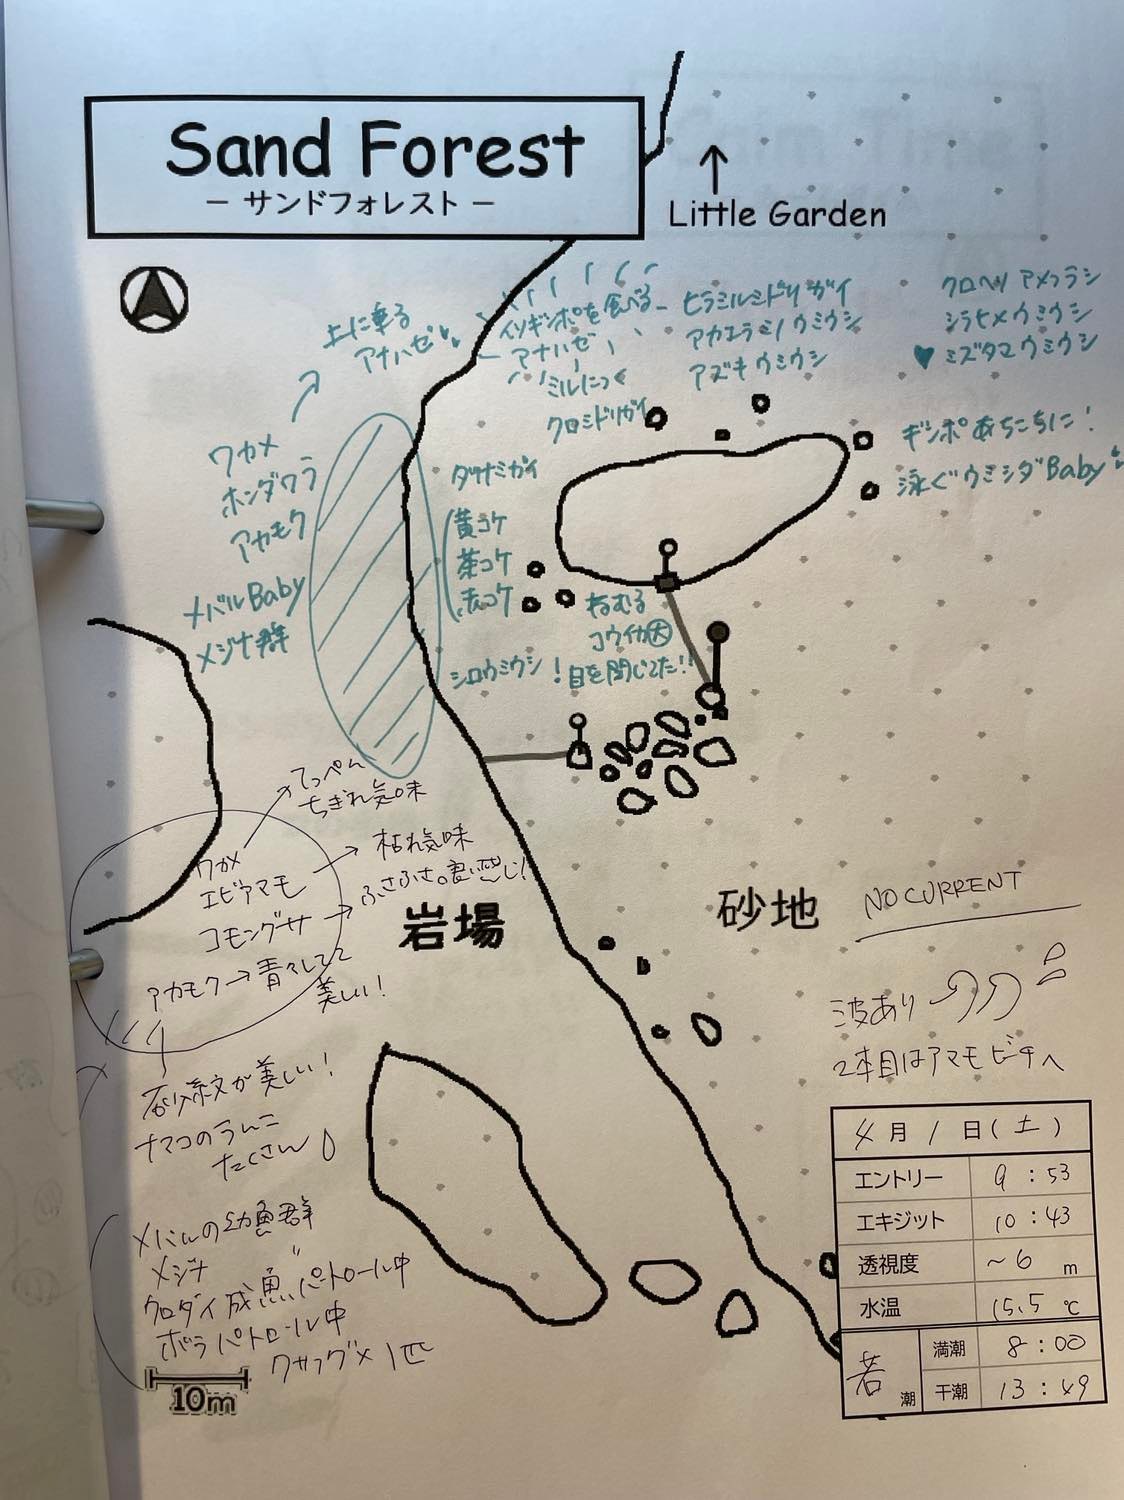 Sand Forest
− サンドフォレスト −
Little Garden
上に乗る
アナハゼ
イソギンポを食べる
アナハゼ
ミルにつく
クロミドリガイ
ヒラミルミドリガイ
アカエラミノウミウシ
アズキウミウシ
クロヘリアメフラシ
シラヒメウミウシ
♥ ミズタマウミウシ
ギンポあちこちに!
泳ぐウミシダBaby
ワカメ
ホンダワラ
アカモク
メバルBaby
メジナ群
タツナミガイ
黄コケ
茶コケ
赤コケ
シロウミウシ!
ねむる
コウイカ大
目を閉じてた!!
てっぺん
ちぎれ気味
ワカメ
エビアマモ → 枯れ気味
コモングサ → ふさふさ。良い感じ!
アカモク → 青々してて
美しい!
岩場
砂地
NO CURRENT
波あり
2本目はアマモビーチへ
砂紋が美しい!
ナマコのうんこ
たくさん
メバルの幼魚群
メジナ 〃
クロダイ成魚パトロール中
ボラパトロール中
クサフグ×1匹
10m
4月1日(土)
エントリー 9:53
エキジット 10:43
透視度 ~6 m
水温 15.5 ℃
若潮
満潮 8:00
干潮 13:49